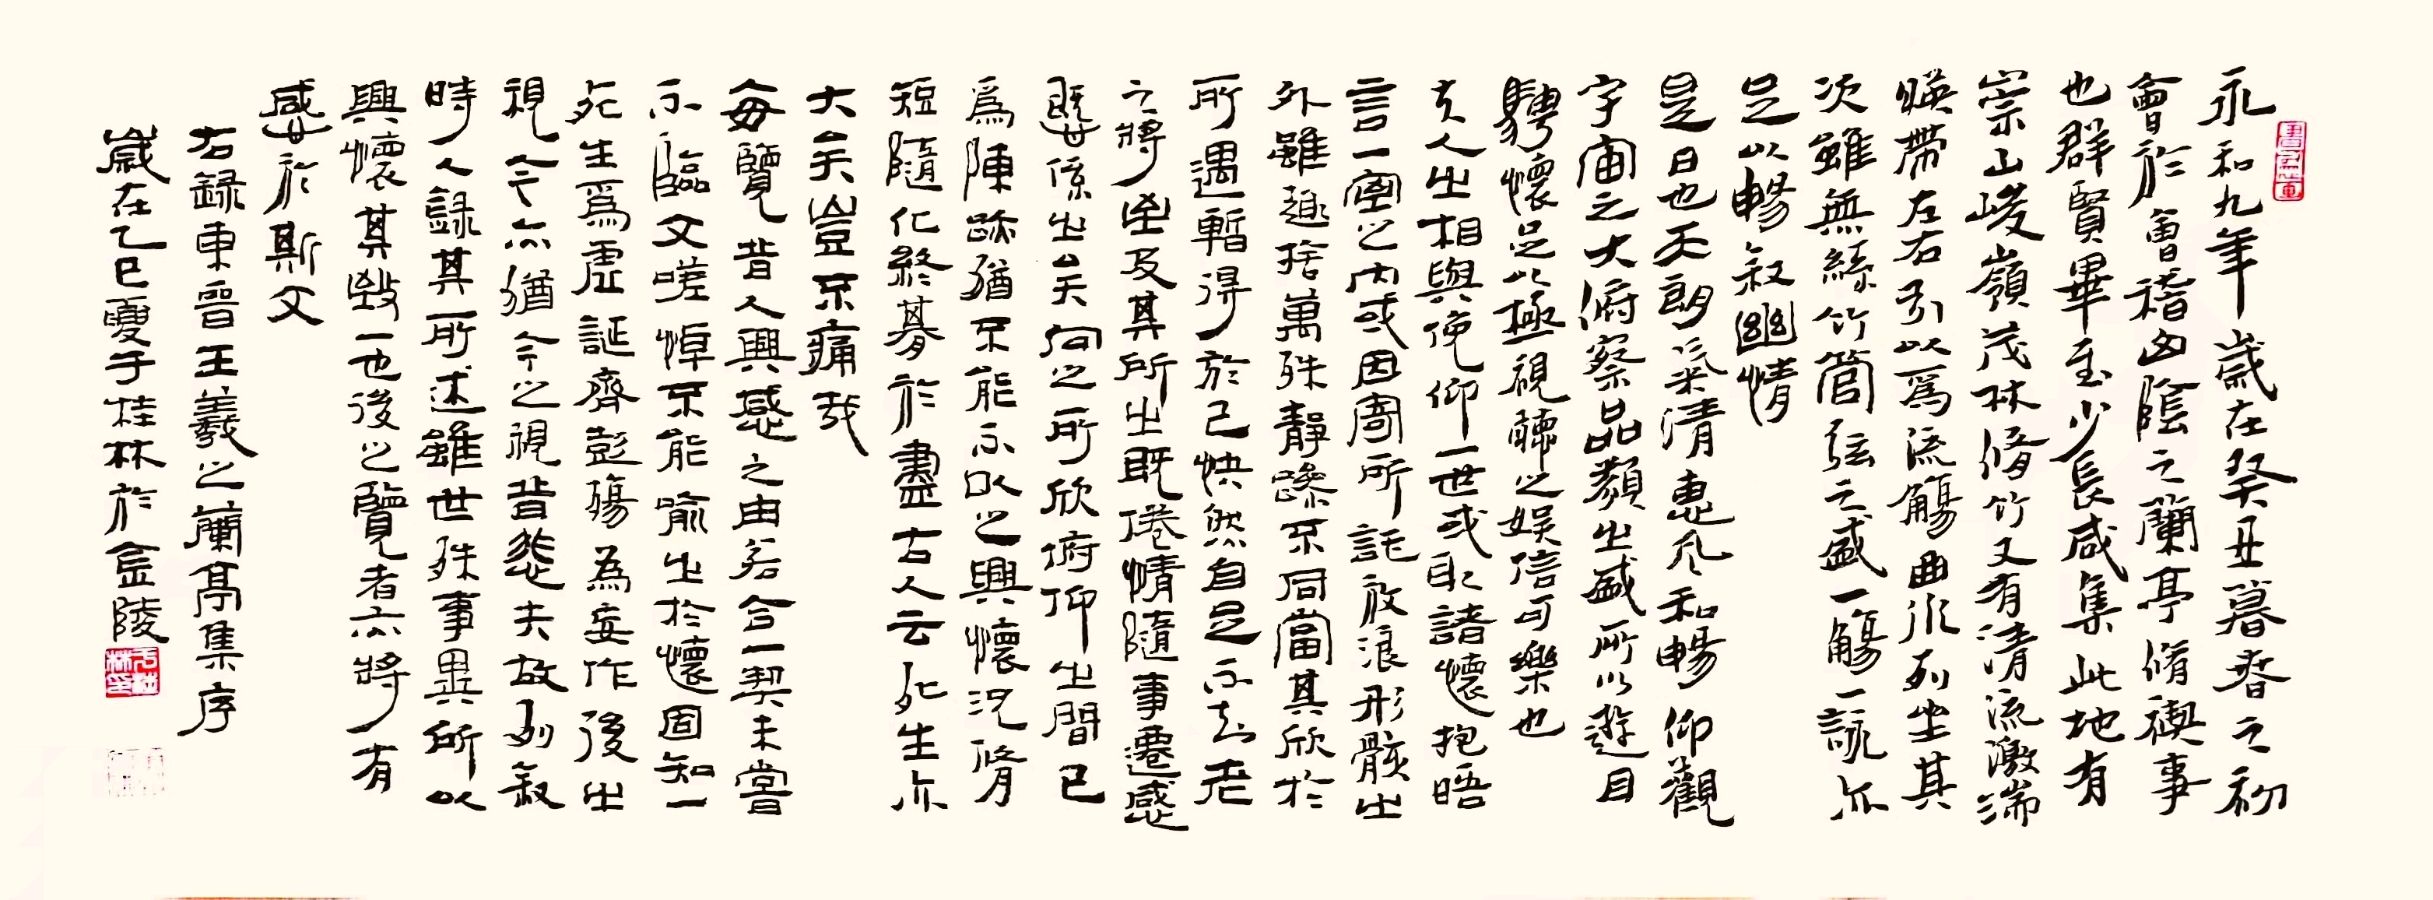 永和九年歲在癸丑暮春之初
會於會稽山陰之蘭亭脩禊事
也群賢畢至少長咸集此地有
崇山峻嶺茂林脩竹又有清流激湍
暎帶左右引以爲流觴曲水列坐其
次雖無絲竹管弦之盛一觴一詠亦
足以暢敘幽情
是日也天朗氣清惠風和暢仰觀
宇宙之大俯察品類之盛所以遊目
騁懷足以極視聽之娛信可樂也
夫人之相與俛仰一世或取諸懷抱晤
言一室之內或因寄所託放浪形骸之
外雖趣捨萬殊靜躁不同當其欣於
所遇暫得於己快然自足不知老
之將至及其所之既倦情隨事遷感
慨係之矣向之所欣俯仰之間已
爲陳跡猶不能不以之興懷況脩
短隨化終期於盡古人云死生亦
大矣豈不痛哉
每覽昔人興感之由若合一契未嘗
不臨文嗟悼不能喻之於懷固知一
死生爲虛誕齊彭殤為妄作後之
視今亦猶今之視昔悲夫故列敘
時人錄其所述雖世殊事異所以
興懷其致一也後之覽者亦將有
感於斯文
右録東晋王羲之蘭亭集序
歲在乙巳夏于桂林於金陵